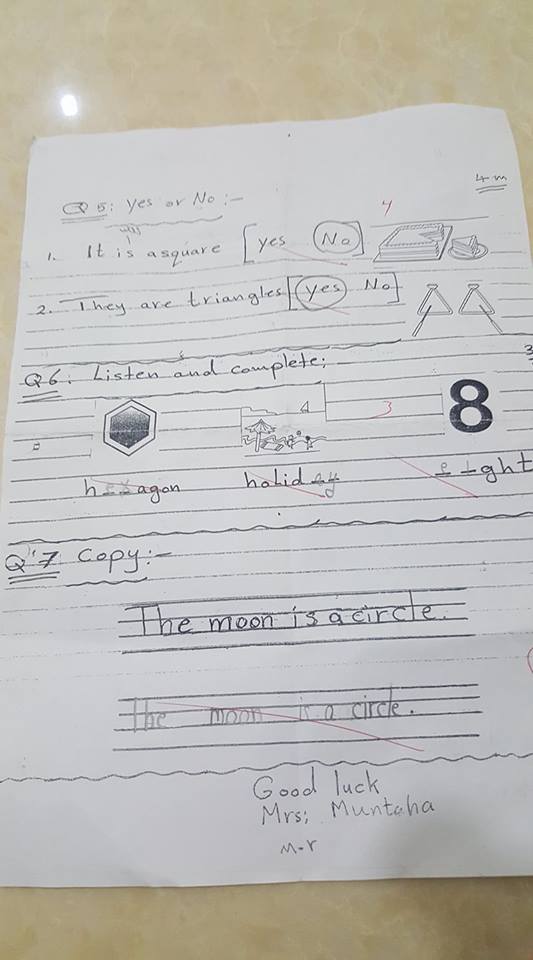 4m
Q 5: Yes or No :-
4
1. It is asquare [yes No]
2. They are triangles [yes No]
3
Q6: Listen and complete;
3
8
hexagon holiday eight
Q 7 Copy:-
The moon is a circle.
The moon is a circle.
Good luck
Mrs; Muntaha
M-r